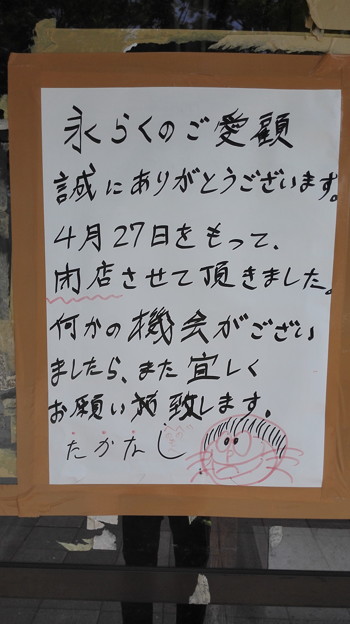 永らくのご愛顧
誠にありがとうございます。
4月27日をもって、
閉店させて頂きました。
何かの機会がござい
ましたら、また宜しく
お願い致します。
たかなし